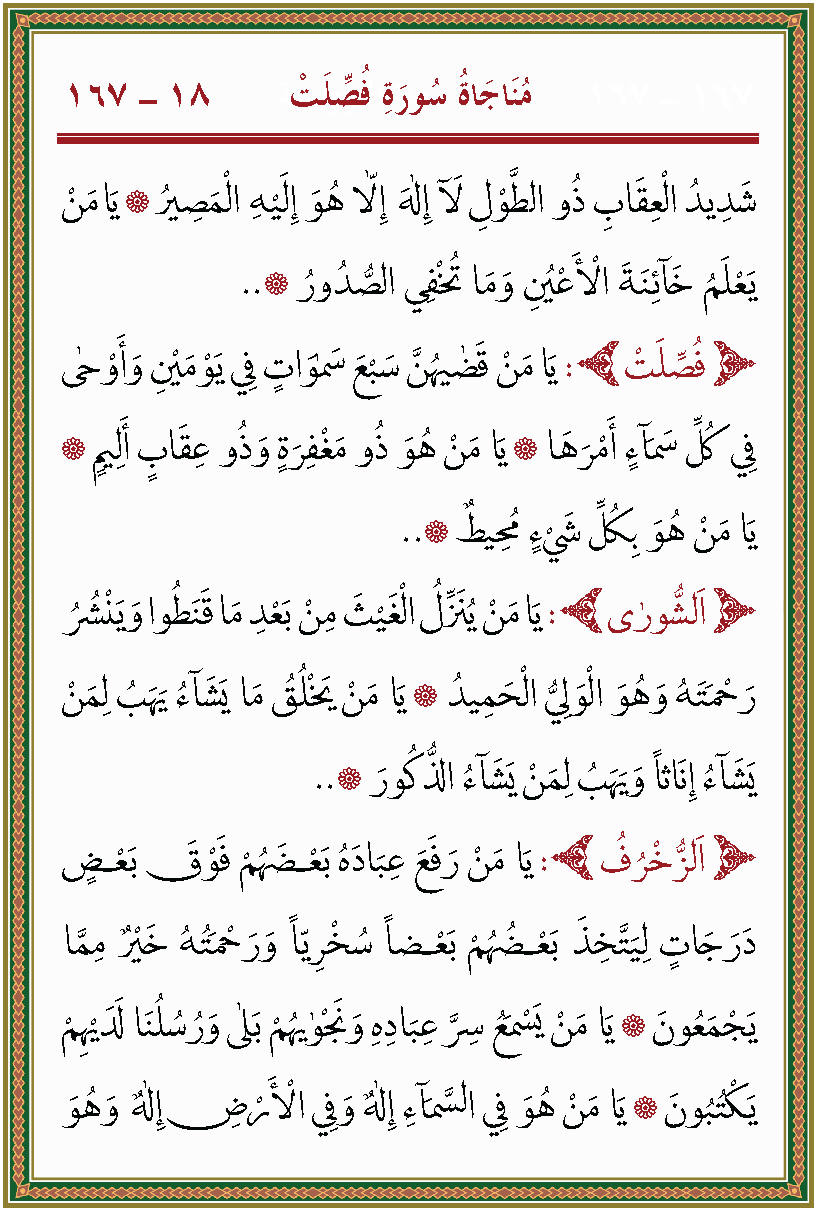 مُنَاجَاةُ سُورَةِ فُصِّلَتْ ١٨ – ١٦٧
شَدِيدُ الْعِقَابِ ذُو الطَّوْلِ لَآ إِلٰهَ إِلَّا هُوَ إِلَيْهِ الْمَصِيرُ ۞ يَا مَنْ
يَعْلَمُ خَآئِنَةَ الْأَعْيُنِ وَمَا تُخْفِي الصُّدُورُ ۞..
﴿ فُصِّلَتْ ﴾: يَا مَنْ قَضٰيهُنَّ سَبْعَ سَمٰوَاتٍ فِي يَوْمَيْنِ وَأَوْحٰى
فِي كُلِّ سَمَآءٍ أَمْرَهَا ۞ يَا مَنْ هُوَ ذُو مَغْفِرَةٍ وَذُو عِقَابٍ أَلِيمٍ ۞
يَا مَنْ هُوَ بِكُلِّ شَيْءٍ مُحِيطٌ ۞..
﴿ اَلشُّورٰى ﴾: يَا مَنْ يُنَزِّلُ الْغَيْثَ مِنْ بَعْدِ مَا قَنَطُوا وَيَنْشُرُ
رَحْمَتَهُ وَهُوَ الْوَلِيُّ الْحَمِيدُ ۞ يَا مَنْ يَخْلُقُ مَا يَشَآءُ يَهَبُ لِمَنْ
يَشَآءُ إِنَاثاً وَيَهَبُ لِمَنْ يَشَآءُ الذُّكُورَ ۞..
﴿ اَلزُّخْرُفُ ﴾: يَا مَنْ رَفَعَ عِبَادَهُ بَعْضَهُمْ فَوْقَ بَعْضٍ
دَرَجَاتٍ لِيَتَّخِذَ بَعْضُهُمْ بَعْضاً سُخْرِيّاً وَرَحْمَتُهُ خَيْرٌ مِمَّا
يَجْمَعُونَ ۞ يَا مَنْ يَسْمَعُ سِرَّ عِبَادِهِ وَنَجْوٰيهُمْ بَلٰى وَرُسُلُنَا لَدَيْهِمْ
يَكْتُبُونَ ۞ يَا مَنْ هُوَ فِي السَّمَآءِ إِلٰهٌ وَفِي الْأَرْضِ إِلٰهٌ وَهُوَ